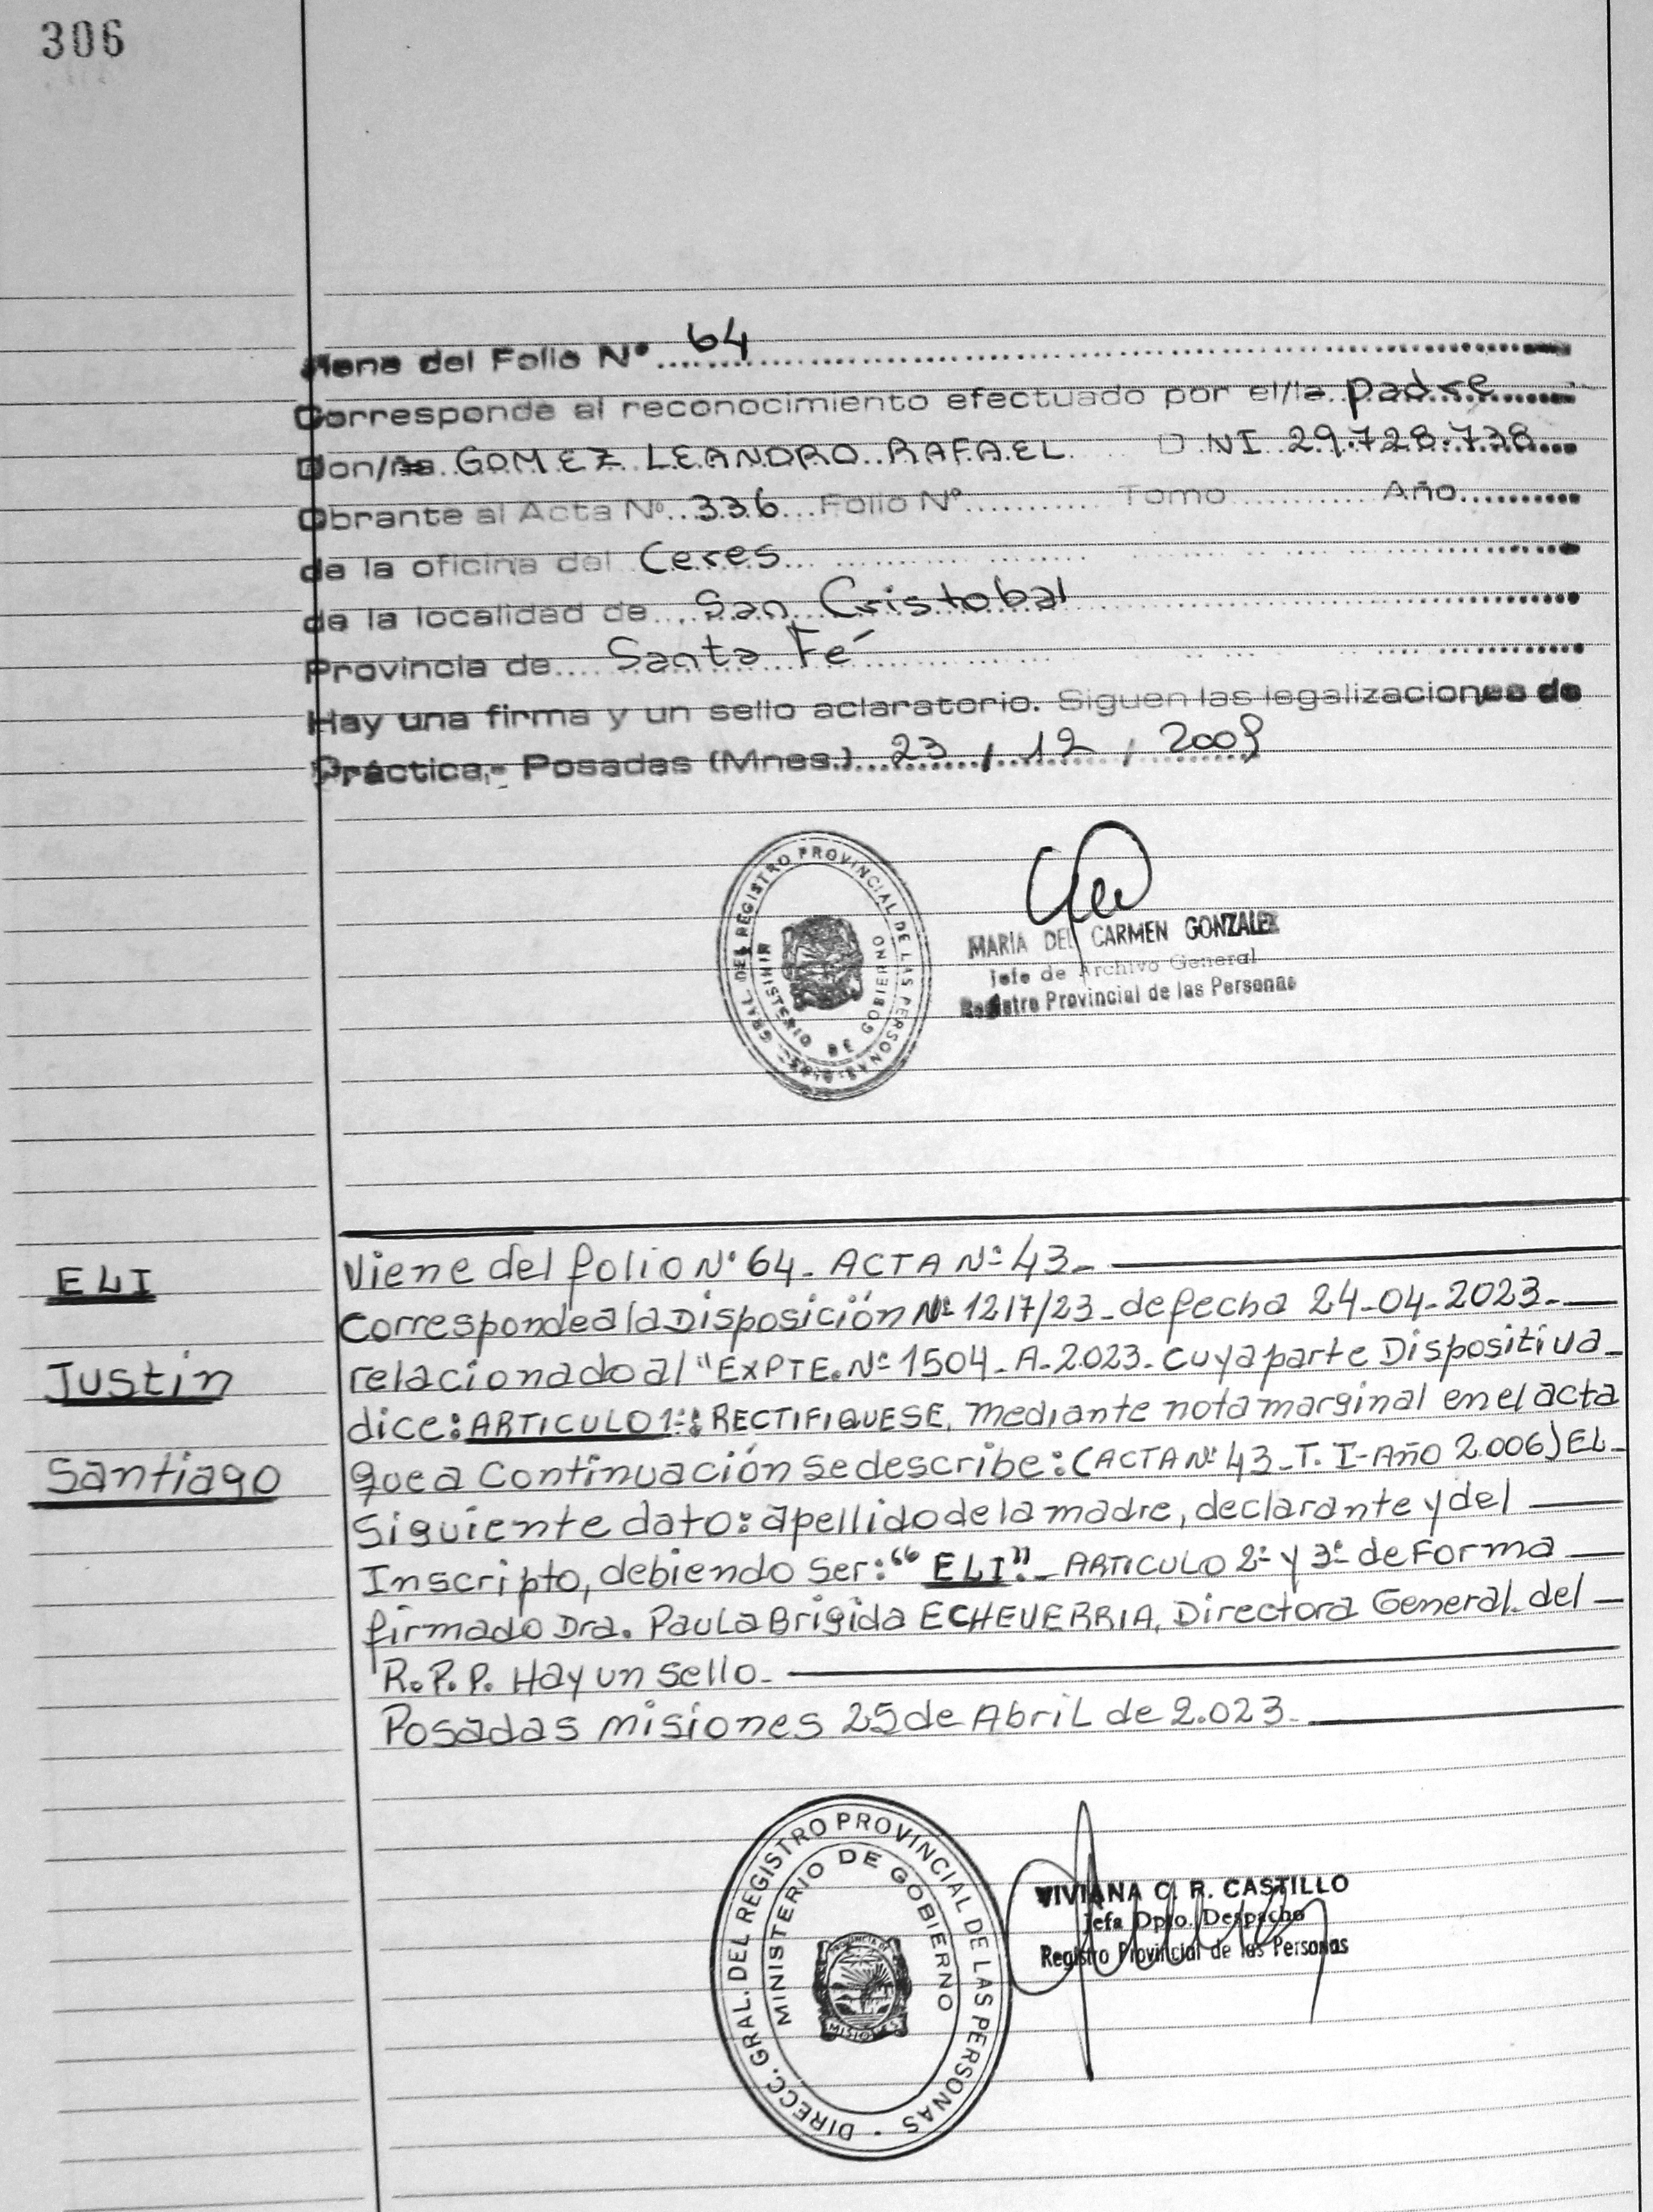 306
Viene del Folio Nº 64
Corresponde al reconocimiento efectuado por el/la padre
Don/ña GOMEZ LEANDRO RAFAEL DNI 29.728.738
Obrante al Acta Nº 336 Folio Nº Tomo Año
de la oficina del Ceres
de la localidad de San Cristobal
Provincia de Santa Fé
Hay una firma y un sello aclaratorio. Siguen las legalizaciones de
Práctica.- Posadas (Mnes.) 23 / 12 / 2009
GRAL. DEL REGISTRO PROVINCIAL DE LAS PERSONAS
MINISTERIO DE GOBIERNO
MARIA DEL CARMEN GONZALEZ
Jefe de Archivo General
Registro Provincial de las Personas
ELI
Justin
Santiago
Viene del folio Nº 64 - ACTA Nº 43 -
Corresponde a la Disposición Nº 1217/23 - de fecha 24-04-2023 -
relacionado al "EXPTE. Nº 1504 - A - 2.023 - cuya parte Dispositiva -
dice: ARTICULO 1º: RECTIFIQUESE, mediante nota marginal en el acta
que a Continuación se describe: (ACTA Nº 43 - T. I - Año 2.006) EL -
Siguiente dato: apellido de la madre, declarante y del
Inscripto, debiendo ser: "ELI". - ARTICULO 2º y 3º de Forma
firmado Dra. Paula Brigida ECHEVERRIA, Directora General del -
R.P.P. Hay un sello. -
Posadas misiones 25 de Abril de 2.023 -
DIRECC. GRAL. DEL REGISTRO PROVINCIAL DE LAS PERSONAS
MINISTERIO DE GOBIERNO
PROVINCIA DE
MISIONES
VIVIANA C. R. CASTILLO
Jefa Dpto. Despacho
Registro Provincial de las Personas